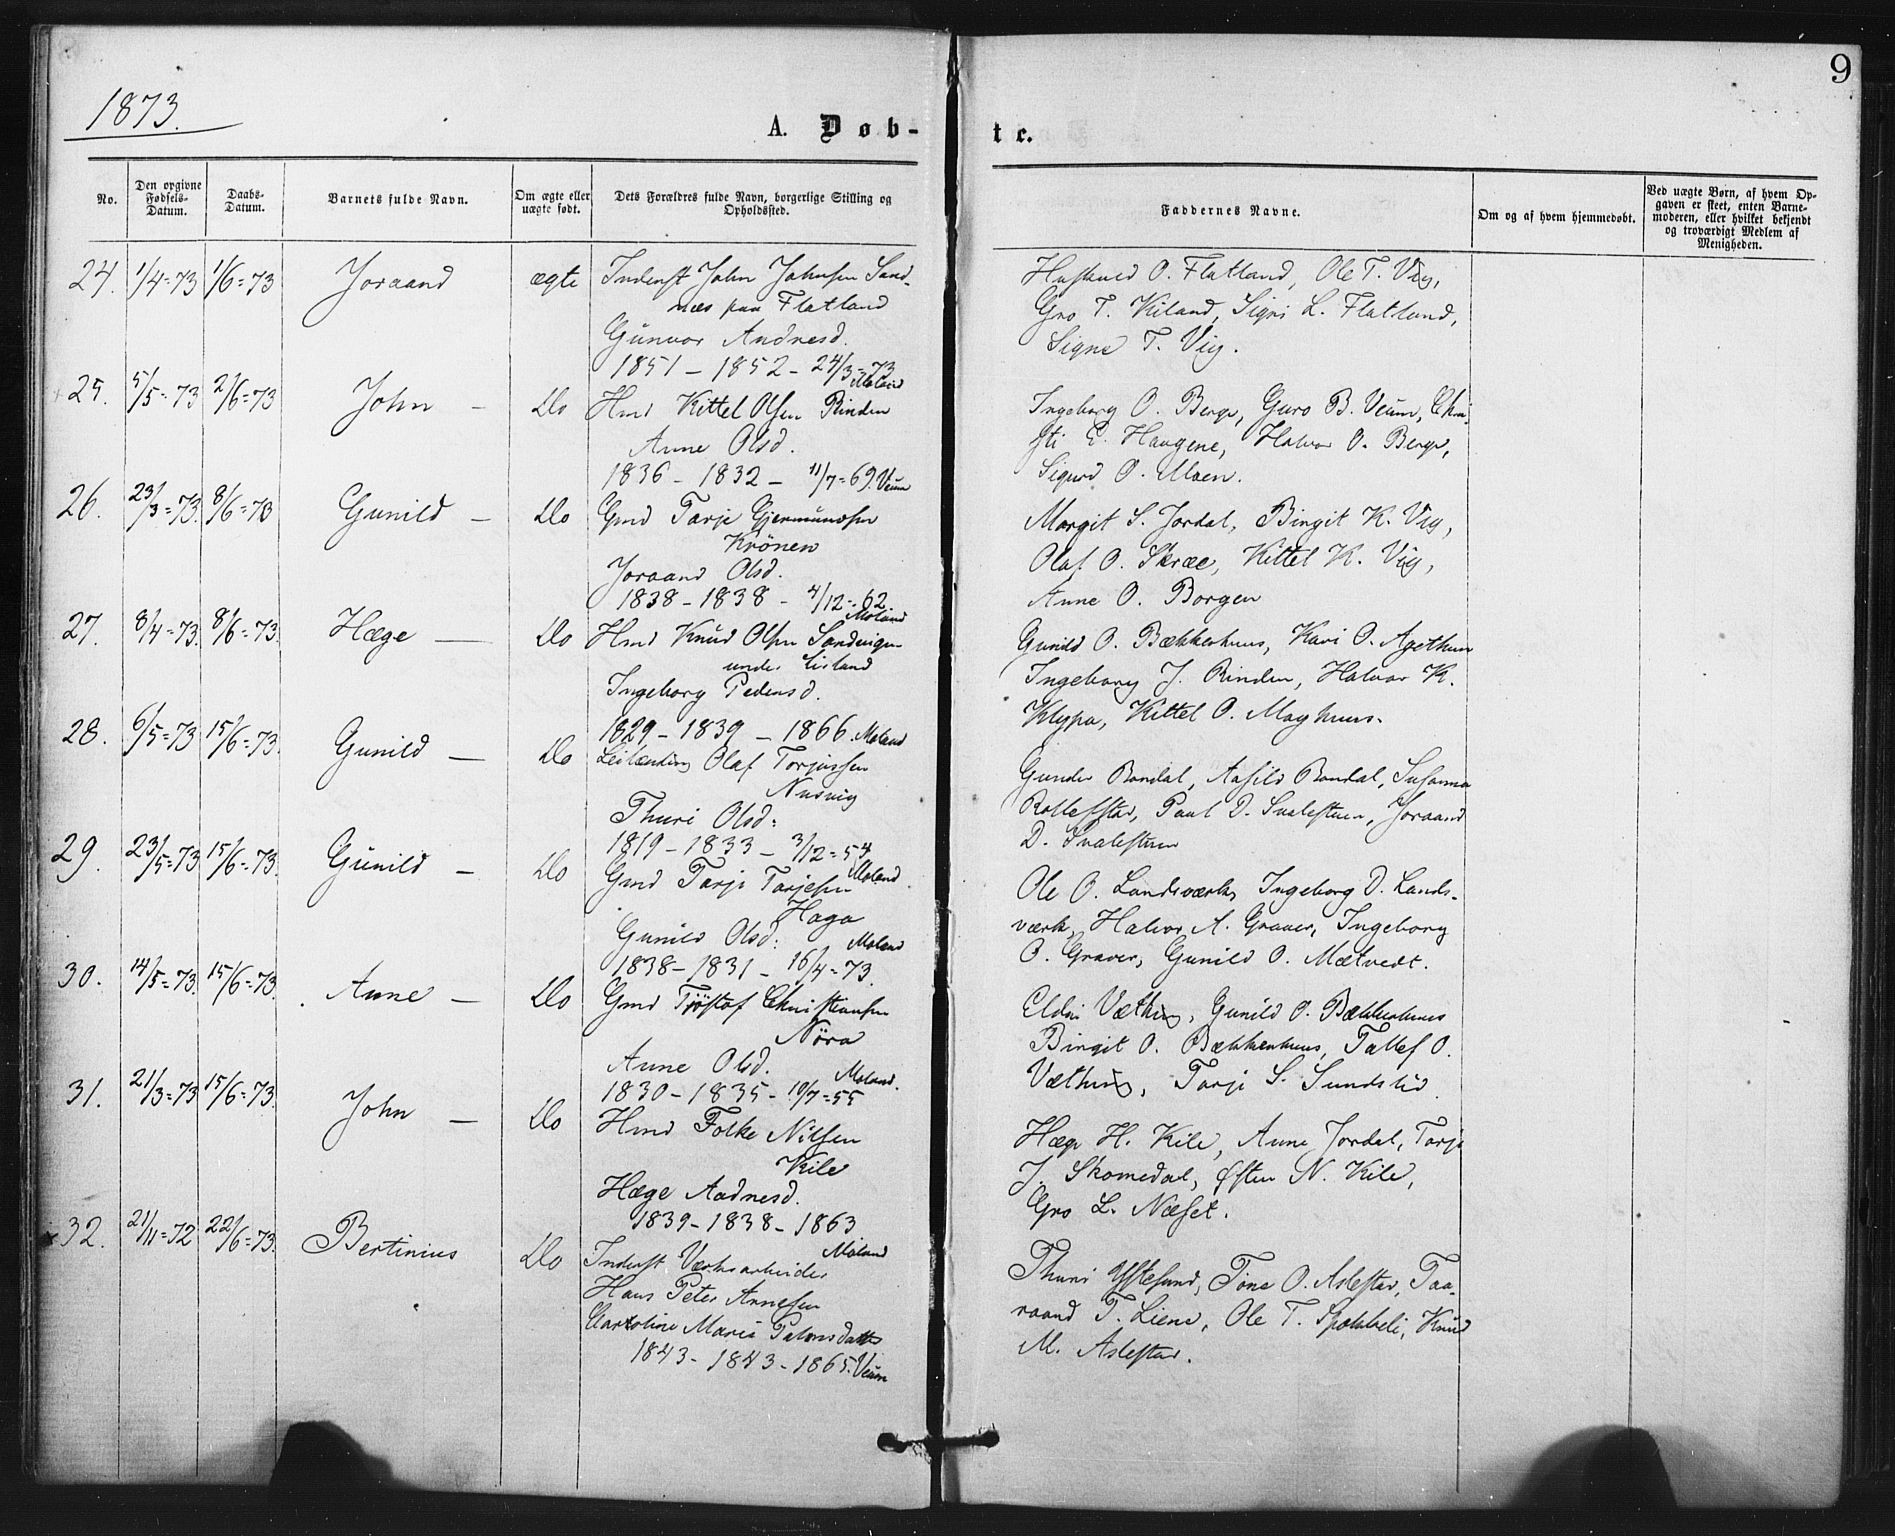 9
1873.
A. Døb-
te.
No.
Den opgivne Fødsels-Datum.
Daabs-Datum.
Barnets fulde Navn.
Om ægte eller uægte født.
Dets Forældres fulde Navn, borgerlige Stilling og Opholdssted.
Faddernes Navne.
Om og af hvem hjemmedøbt.
Ved uægte Børn, af hvem Opgaven er skeet, enten Barnemoderen, eller hvilket bekjendt og troværdigt Medlem af Menigheden.
24. 1/4=73 1/6=73 Joraand ægte Inderst John Johnsen Sand-
næs paa Flatland
Gunvor Andresd.
1851 - 1852 - 24/3=73 Moland
O. Flatland, Ole T. Vig,
Gro T. Kiland, Sigri L. Flatland,
Signe T. Vig.
25. 5/5=73 2/6=73 John - Do Hmd Kittel Olsen Rinden
Anne Olsd.
1836 - 1832 - 11/7=69. Veum
Ingeborg O. Berge, Guro B. Veum, Chri-
sti E. Haugene, Halvor O. Berge,
Sigurd O. Ulven.
26. 23/3=73. 8/6=73 Gunild - Do Gmd Tarje Gjermundsen
Krönen
Joraand Olsd.
1838 - 1838 - 4/12=62 Moland
Margit S. Jordal, Birgit K. Vig,
Olaf O. Skree, Kittel K. Vig,
Anne O. Borgen
27. 8/4=73. 8/6=73. Hæge - Do Hmd Knud Olsen Sandvigen
under Eisland
Ingeborg Pedersd.
1829 - 1839 - 1866. Moland
Gunild O. Bækkerhuus, Kari O. Agethun
Ingeborg J. Rinden, Halvor K.
Klypa, Kittel O. Moghuus.
28. 6/5=73 15/6=73. Gunild - Do Leilænding Olaf Torjussen
Næsvig
Thuri Olsd:
1819 - 1833 - 3/12=54 Moland
Gunder Bondal, Aasild Bondal, Susanna
Rollefstad, Paul D. Svalestuen, Joraand
D. Svalestuen
29. 23/5=73 15/6=73. Gunild - Do Gmd Tarje Tarjesen
Haga
Gunild Olsd: Moland
1838 - 1831 - 16/4=73.
Ole O. Landsværk, Ingeborg D. Lands-
værk, Halvor A. Graver, Ingeborg
O. Graver, Gunild O. Mætvedt.
30. 14/5=73. 15/6=73. Anne - Do Gmd Tjöstof Christiansen
Nöra
Anne Olsd. Moland.
1830 - 1835 - 10/7=55
Eldri Væthing, Gunild O. Bækkerhuus
Birgit O. Bækkerhuus, Tallef O.
Væthing, Tarje S. Sundslid.
31. 21/3=73 15/6=73. John - Do Hmd Folke Nilsen
Kile
Hæge Aadnesd.
1839 - 1838 - 1863 Moland
Hæge H. Kile, Anne Jordal, Tarje
J. Skomedal, Øften N. Kile,
Gro L. Næset.
32. 21/11=72 22/6=73. Bertinius Do Inderst Værksarbeider
Hans Peter Arnesen
Maria
1843 - 1843 - 1865. Veum
Thuri Yftesund, Tone O. Aslestad, Taa-
raand T. Liene, Ole T. Spokkeli, Knud
M. Aslestad.